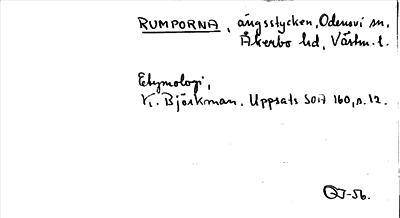 RUMPORNA, ängsstycken, Odensvi sn,
Åkerbo hd, Västm. l.
Etymologi,
V. Björkman. Uppsats SOA 160, s. 12.
-56.